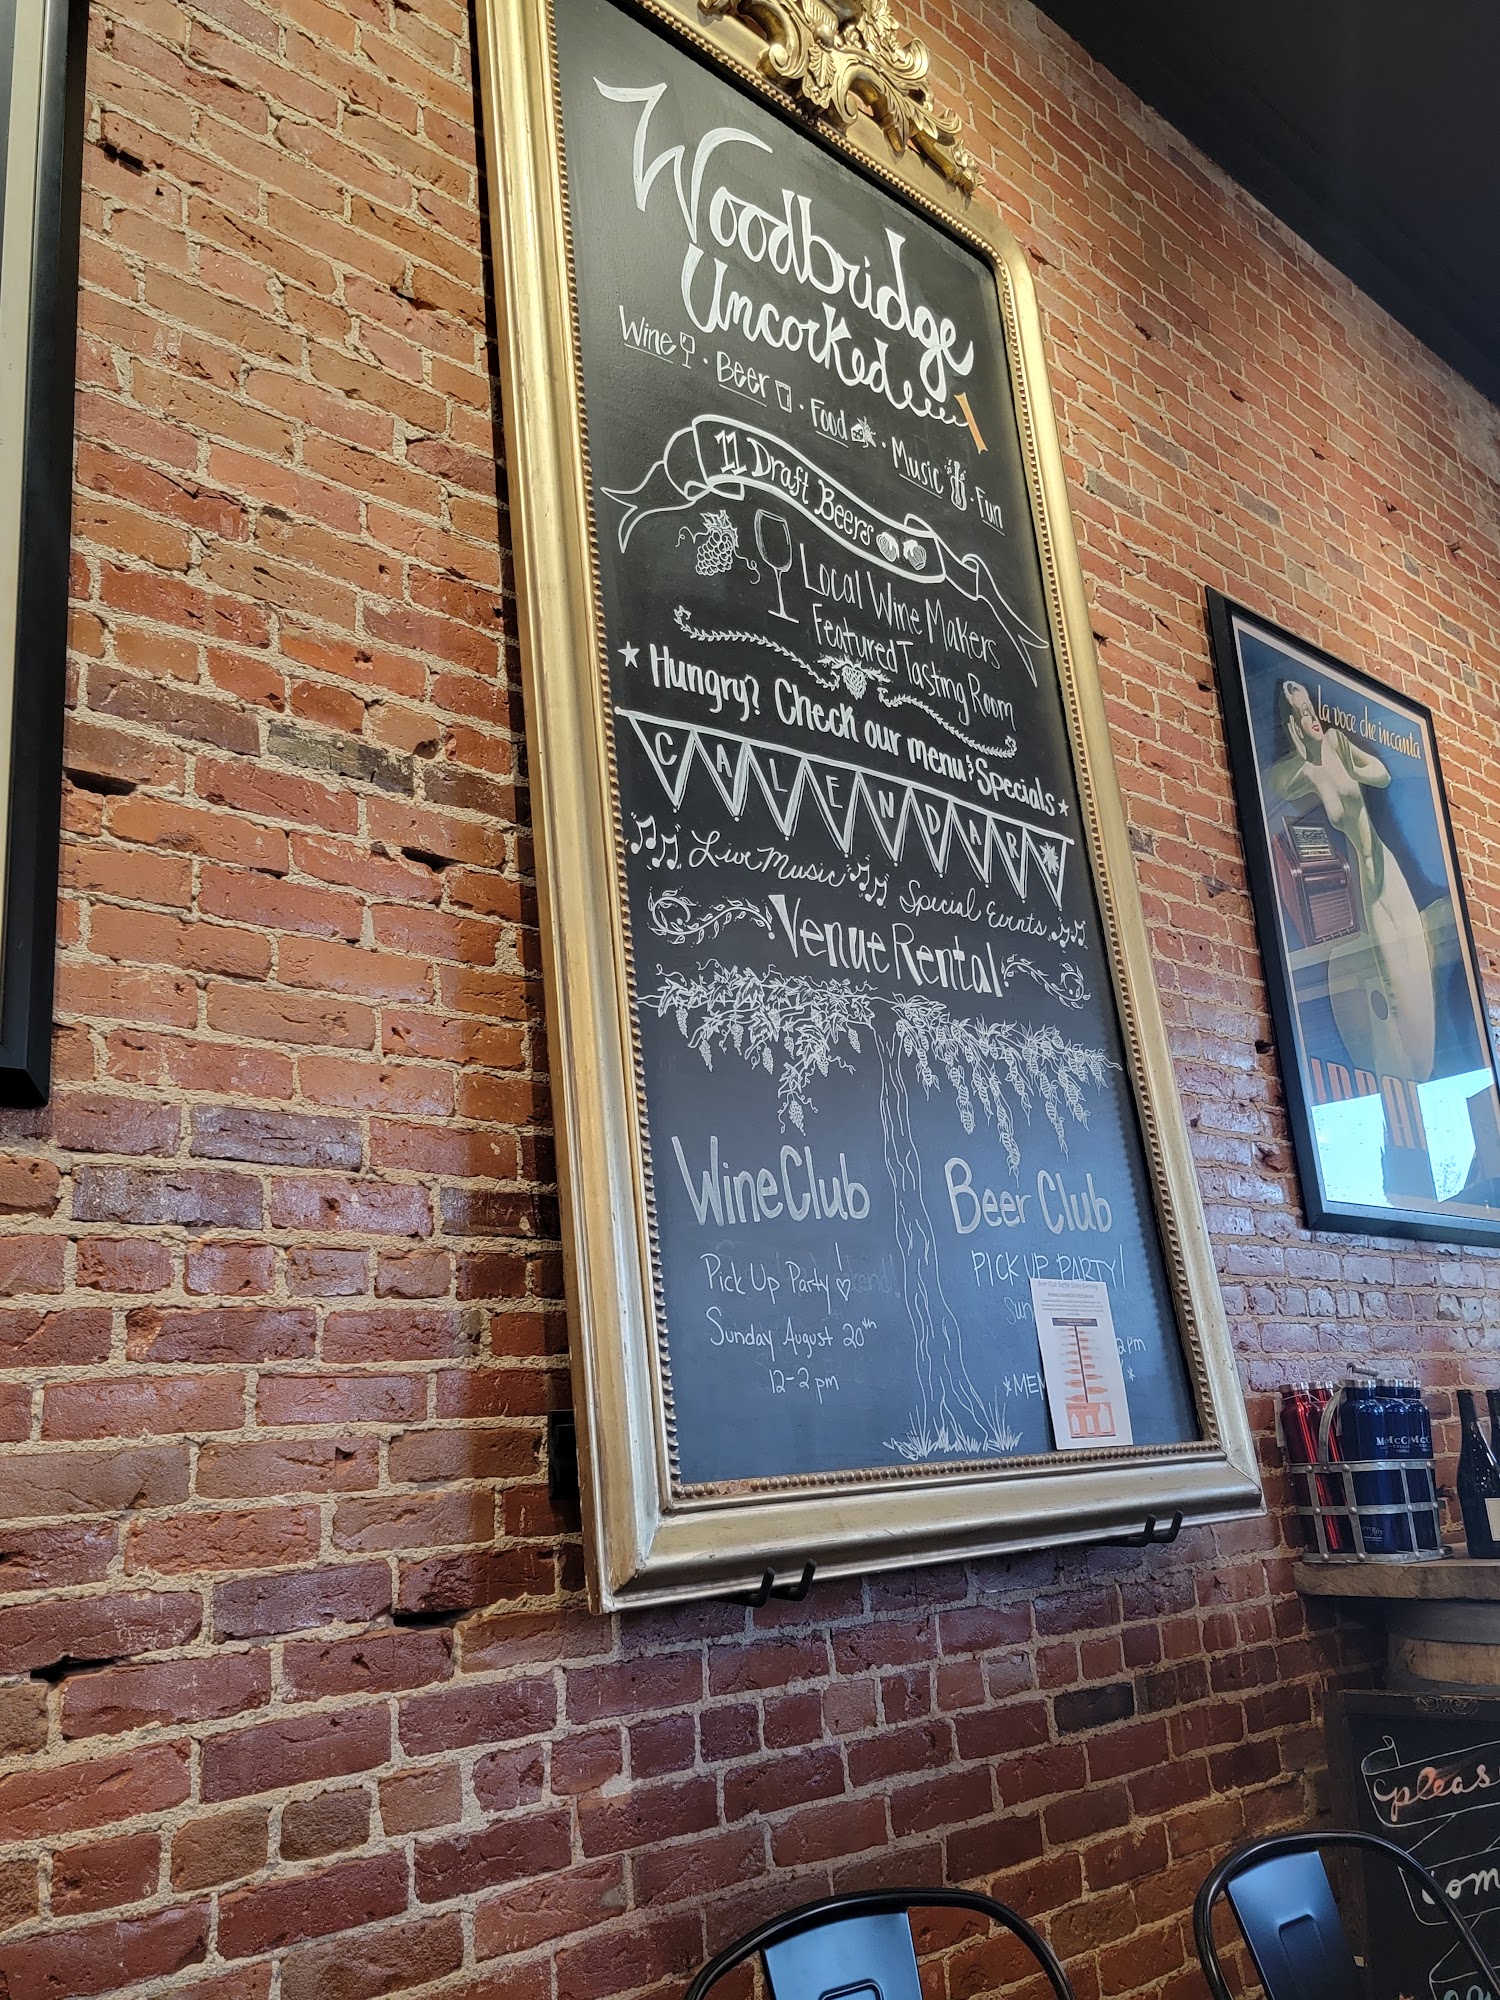 Woodbridge
Uncorked
Wine · Beer · Food · Music · Fun
11 Draft Beers
Local Wine Makers
Featured Tasting Room
* Hungry? Check our menu & Specials *
CALENDAR
Live Music Special Events
Venue Rental!
Wine Club
Pick Up Party
Sunday August 20th
12-2 pm
Beer Club
PICK UP PARTY!
Sun
2pm
*MEM
*
la voce che incanta
pleas